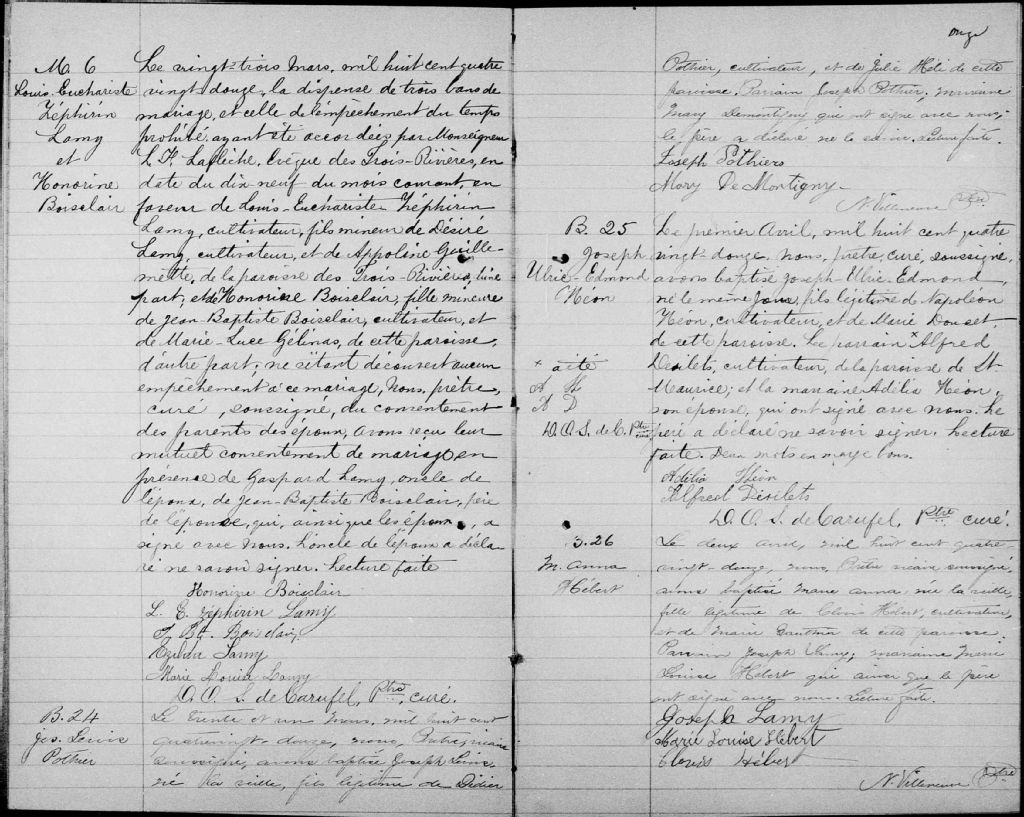 M. 6
Louis-Euchariste
Zéphirin
Lamy
et
Honorine
Boisclair
Le vingt-trois Mars, mil huit cent quatre
vingt-douze, la dispense de trois bans de
mariage, et celle de l'empêchement du temps
prohibé ayant été accordées par Monseigneur
L. F. Laflèche, Evêque des Trois-Rivières, en
date du dix neuf du mois courant, en
faveur de Louis-Euchariste Zéphirin
Lamy, cultivateur, fils mineur de Désiré
Lamy, cultivateur, et de Appoline Guille-
mette, de la paroisse des Trois-Rivières, d'une
part; et de Honorine Boisclair, fille mineure
de Jean-Baptiste Boisclair, cultivateur, et
de Marie-Luce Gélinas, de cette paroisse,
d'autre part; ne s'étant découvert aucun
empêchement à ce mariage, Nous, prêtre,
curé, soussigné, du consentement
des parents des époux, avons reçu leur
mutuel consentement de mariage en
présence de Gaspard Lamy, oncle de
l'époux, de Jean-Baptiste Boisclair, père
de l'épouse, qui, ainsi que les époux, a
signé avec nous. L'oncle de l'époux a décla-
ré ne savoir signer. Lecture faite
Honorine Boisclair
L. E. Zéphirin Lamy
J. Bt. Boisclair,
Ezilda Lamy
Marie Louise Lamy
D. O. S. de Carufel, Ptre, curé.
B. 24
Jos. Louis
Pothier
Le trente et un Mars, mil huit cent
quatrevingt-douze, nous, Prêtre, vicaire
soussigné, avons baptisé Joseph Louis,
né la veille, fils légitime de Didier
onze
Pothier, cultivateur, et de Julie Héli de cette
paroisse. Parrain Joseph Pothier, marraine
Mary Demontigny qui ont signé avec nous;
le père a déclaré ne le savoir. Lecture faite.
Joseph Pothiers
Mary De Montigny
N. Villeneuve Ptre
B. 25
Joseph
Ulric-Edmond
Héon
Le premier Avril, mil huit cent quatre
vingt-douze, nous, prêtre, curé, soussigné,
avons baptisé Joseph-Ulric-Edmond,
né le même jour, fils légitime de Napoléon
Héon, cultivateur, et de Marie Douset,
de cette paroisse. Le parrain + Alfred
Désilets, cultivateur, de la paroisse de St-
Maurice; et la marraine Adélia Héon,
son épouse, qui ont signé avec nous. Le
père a déclaré ne savoir signer. Lecture
faite. Deux mots en marge bons.
+ a été
A H
A D
D. O. S. de C. Ptre
Adélia Héon
Alfred Désilets
D. O. S. de Carufel, Ptre curé.
B. 26
M. Anna
Hébert
Le deux avril, mil huit cent quatre-
vingt-douze, nous, Prêtre vicaire soussigné,
avons baptisé Marie Anna née la veille,
fille légitime de Clovis Hébert, cultivateur,
et de Marie Gauthier de cette paroisse.
Parrain Joseph Lamy; marraine Marie
Louise Hébert qui ainsi que le père
ont signé avec nous. Lecture faite.
Joseph Lamy
Marie Louise Hébert
Clovis Héber
N. Villeneuve Ptre